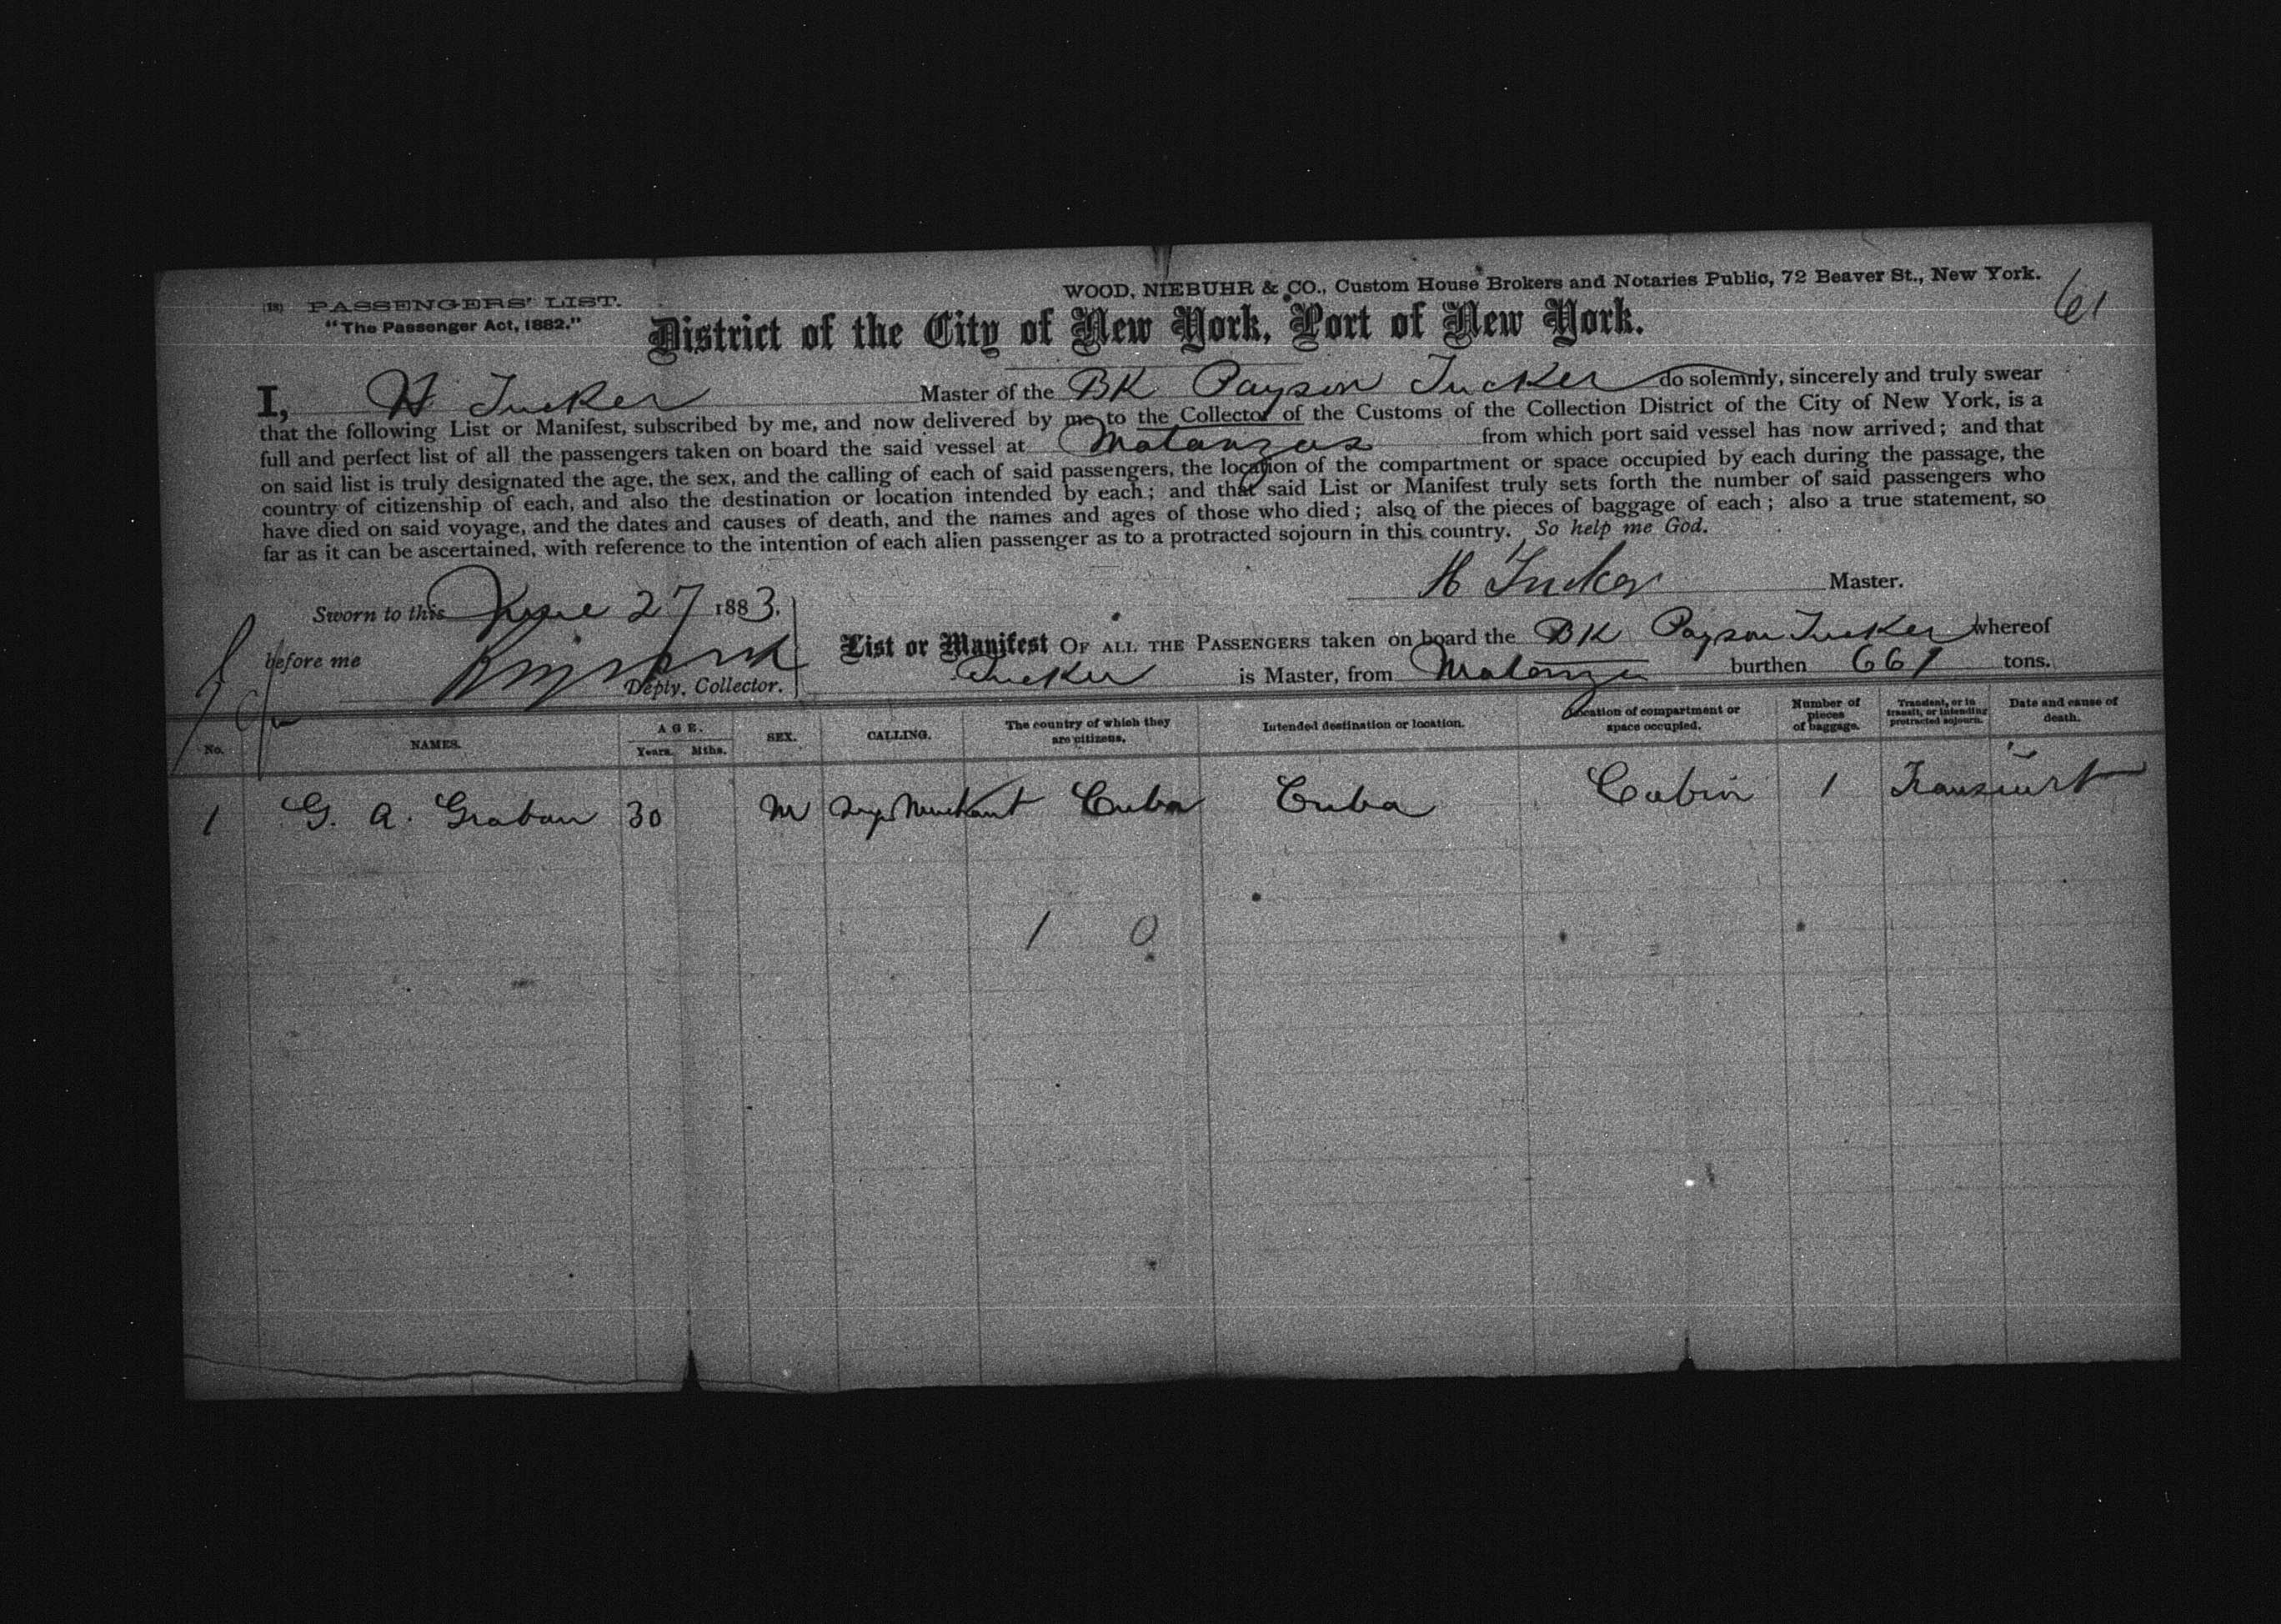 (18) PASSENGERS' LIST.
"The Passenger Act, 1882."
WOOD, NIEBUHR & CO., Custom House Brokers and Notaries Public, 72 Beaver St., New York.
61
District of the City of New York, Port of New York.
I, H Tucker Master of the BK Payson Tucker do solemnly, sincerely and truly swear
that the following List or Manifest, subscribed by me, and now delivered by me to the Collector of the Customs of the Collection District of the City of New York, is a
full and perfect list of all the passengers taken on board the said vessel at Matanzas from which port said vessel has now arrived; and that
on said list is truly designated the age, the sex, and the calling of each of said passengers, the location of the compartment or space occupied by each during the passage, the
country of citizenship of each, and also the destination or location intended by each; and that said List or Manifest truly sets forth the number of said passengers who
have died on said voyage, and the dates and causes of death, and the names and ages of those who died; also of the pieces of baggage of each; also a true statement, so
far as it can be ascertained, with reference to the intention of each alien passenger as to a protracted sojourn in this country. So help me God.
H Tucker Master.
Sworn to this June 27 1883.
before me
Depty. Collector.
List or Manifest OF ALL THE PASSENGERS taken on board the BK Payson Tucker whereof
Tucker is Master, from Matanzas burthen 661 tons.
No. NAMES. AGE. Years. Mths. SEX. CALLING. The country of which they are citizens. Intended destination or location. Location of compartment or space occupied. Number of pieces of baggage. Transient, or in transit, or intending protracted sojourn. Date and cause of death.
1 G. A. Graban 30 M Merchant Cuba Cuba Cabin 1 Transient
1 0